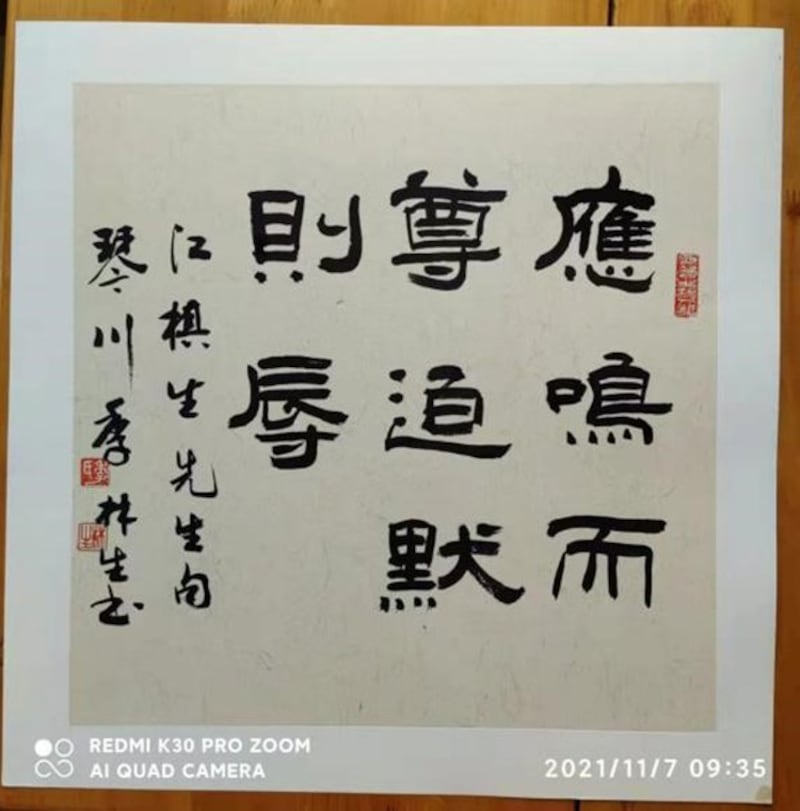 應鳴而
尊迫默
則辱
江棋生先生句
琴川季林生书
REDMI K30 PRO ZOOM
AI QUAD CAMERA
2021/11/7 09:35